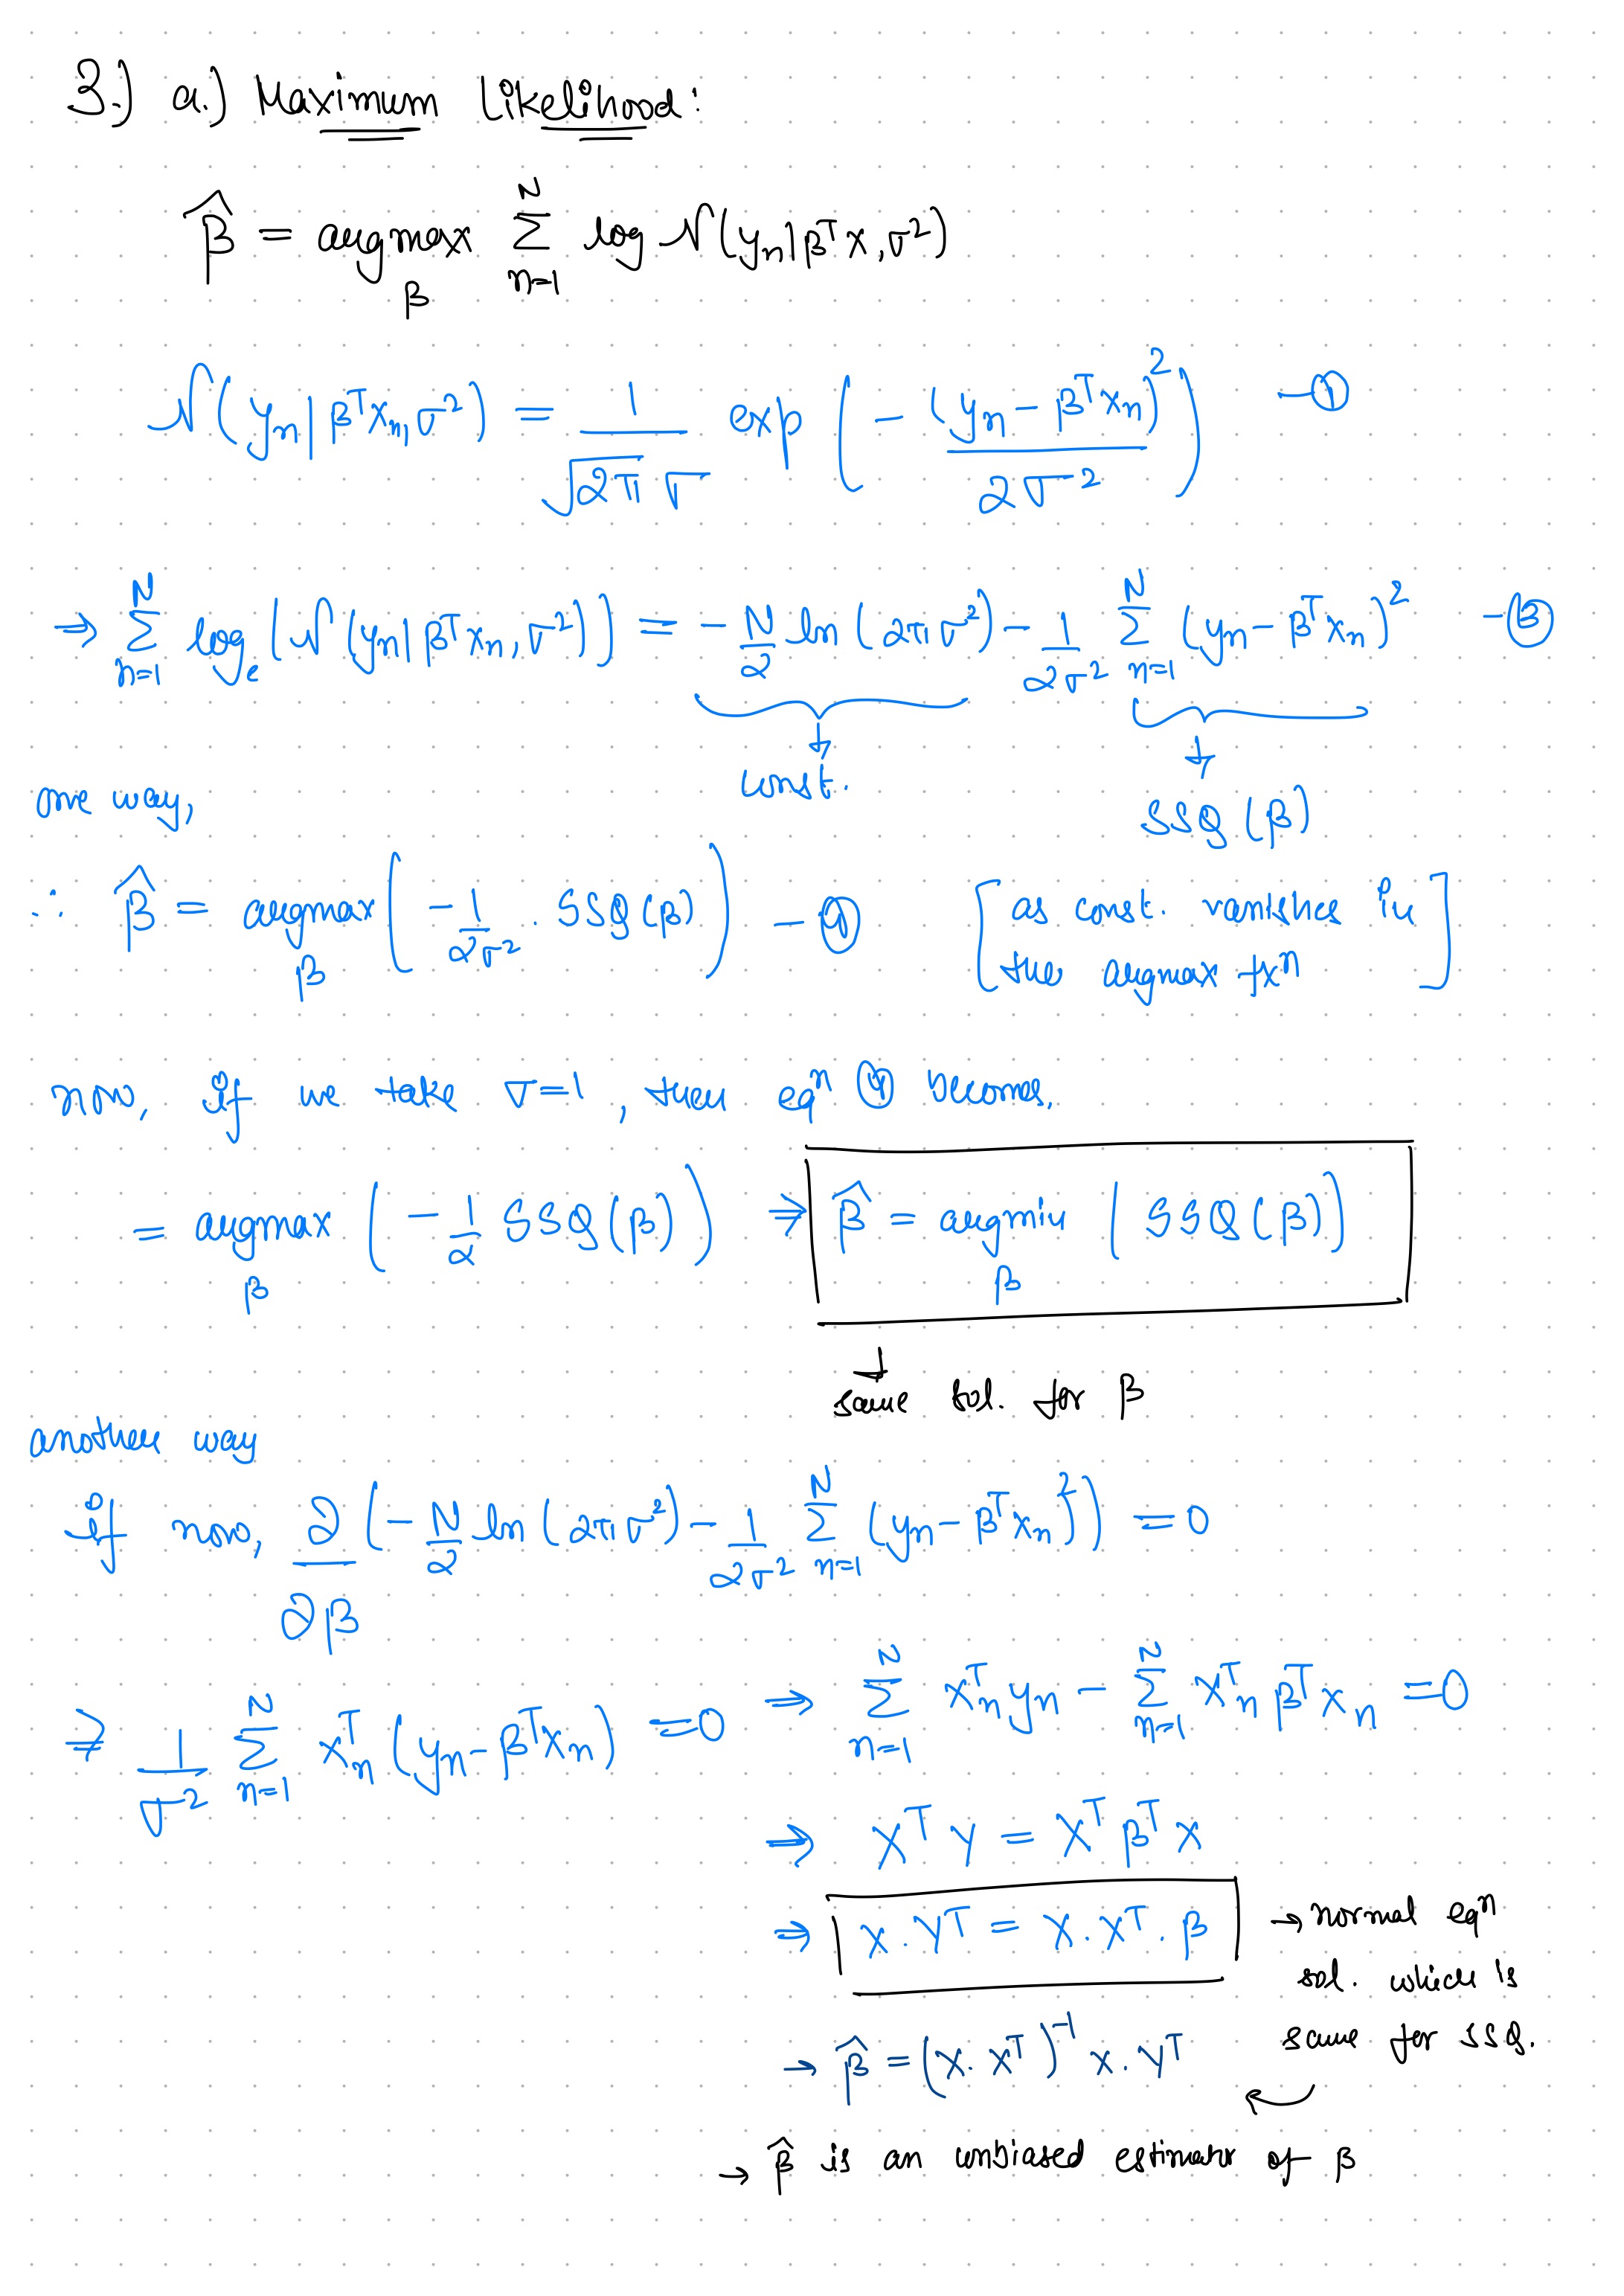 3.) a.) Maximum Likelihood:
β̂ = argmax_β Σ_{n=1}^{N} log 𝒩(y_n | β^T x, σ²)
𝒩(y_n | β^T x_n, σ²) = 1/(√(2π) σ) exp(-(y_n - β^T x_n)²/(2σ²)) - ①
⇒ Σ_{n=1}^{N} log_e(𝒩(y_n | β^T x_n, σ²)) = -N/2 ln(2πσ²) - 1/(2σ²) Σ_{n=1}^{N} (y_n - β^T x_n)² - ③
const.
one way,
SSQ(β)
∴ β̂ = argmax_β (-1/(2σ²) . SSQ(β)) - ④ [as const. vanishes in
the argmax fxⁿ]
now, if we take σ=1, then eqⁿ ④ becomes,
= argmax_β (-1/2 SSQ(β)) ⇒ β̂ = argmin_β (SSQ(β))
same sol. for β
another way
if now, ∂/∂β (-N/2 ln(2πσ²) - 1/(2σ²) Σ_{n=1}^{N} (y_n - β^T x_n)²) = 0
⇒ 1/σ² Σ_{n=1}^{N} x_n^T (y_n - β^T x_n) = 0 ⇒ Σ_{n=1}^{N} x_n^T y_n - Σ_{n=1}^{N} x_n^T β^T x_n = 0
⇒ X^T Y = X^T β^T X
⇒ X . Y^T = X . X^T . β → normal eqⁿ
sol. which is
same for SSQ.
→ β̂ = (X . X^T)^{-1} X . Y^T
→ β̂ is an unbiased estimator of β